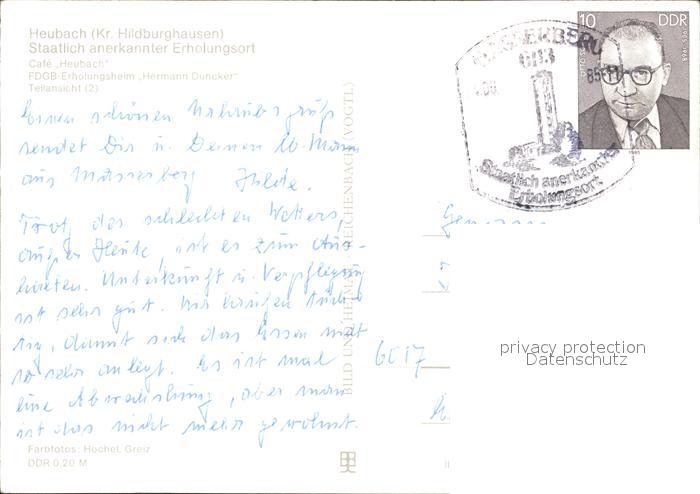 Heubach (Kr. Hildburghausen)
Staatlich anerkannter Erholungsort
Café „Heubach"
FDGB-Erholungsheim „Hermann Duncker"
Teilansicht (2)
Einen schönen Urlaubsgruß
sendet Dir u. Deinem lb. Mann
aus Masserberg Hilde.
Trotz des schlechten Wetters,
außer Heute, ist es zum Aus-
halten. Unterkunft u. Verpflegung
ist sehr gut. Wir laufen tüch-
tig, damit sich das Essen nicht
so sehr anlegt. Es ist mal
eine Abwechslung, aber man
ist das nicht mehr gewohnt.
Farbfotos: Hochel, Greiz
DDR 0,20 M
BILD UND HEIMAT REICHENBACH (VOGTL)
10 DDR
1985
MASSERBERG
6113
85-11
Staatlich anerkannter
Erholungsort
6017
privacy protection
Datenschutz